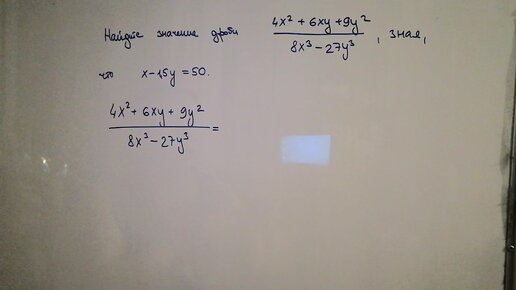 Найдите значение дроби (4x² + 6xy + 9y²)/(8x³ − 27y³), зная,
что x − 1,5y = 50.
(4x² + 6xy + 9y²)/(8x³ − 27y³) =